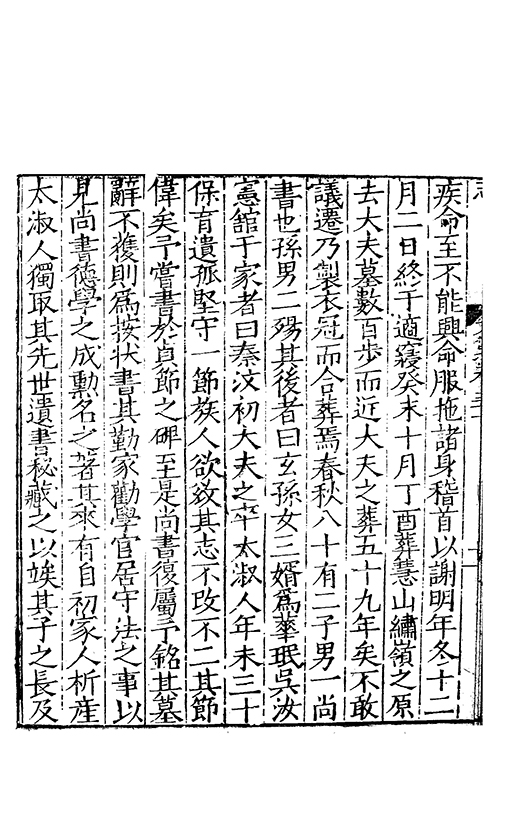 疾命至不能興命服拖諸身稽首以謝明年冬十二
月二日終于適寢癸未十月丁酉葬慧山繡嶺之原
去大夫墓數百步而近大夫之葬五十九年矣不敢
議遷乃製衣冠而合葬焉春秋八十有二子男一尚
書也孫男二殤其後者曰玄孫女三婿為華珉吳汝
憲舘于家者曰秦汶初大夫之卒太淑人年未三十
保育遺孤堅守一節族人欲敓其志不攺不二其節
偉矣予嘗書於貞節之碑至是尚書復屬予銘其墓
辭不獲則為按狀書其勤家勸學官居守法之事以
見尚書德學之成勳名之著其來有自初家人析産
太淑人獨取其先世遺書秘藏之以竢其子之長及